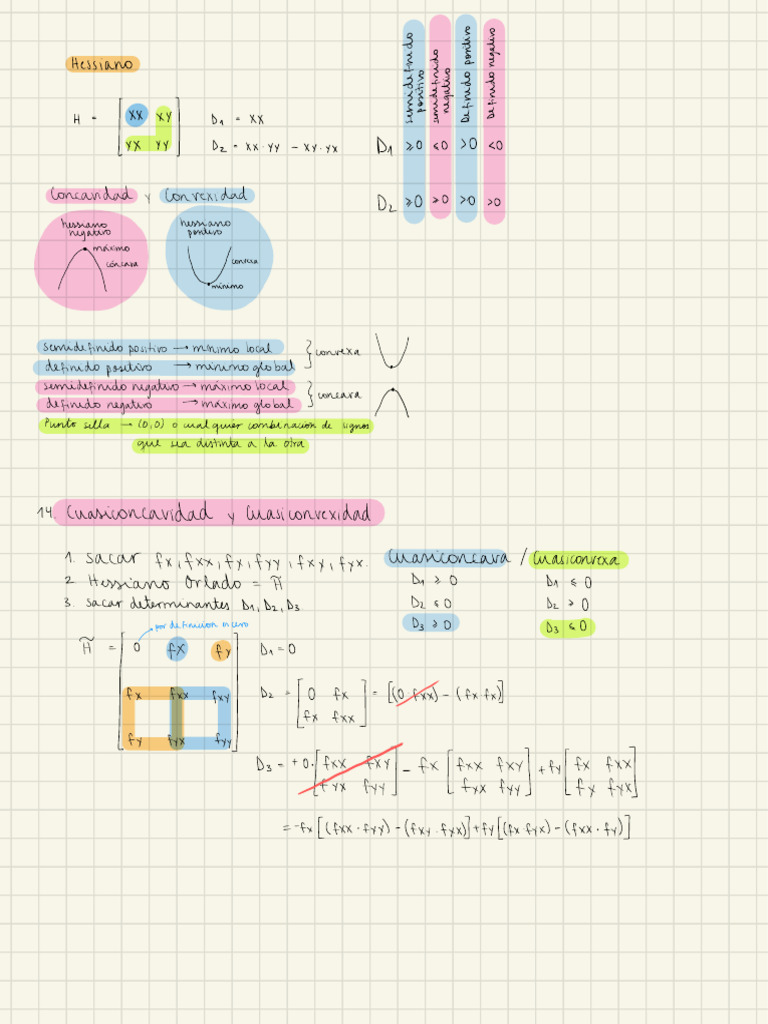 Hessiano
H = [ xx xy
yx yy ]
D1 = xx
D2 = xx·yy − xy·yx
semidefinido positivo
semidefinido negativo
Definido positivo
Definido negativo
D1 ≥0 ≤0 >0 <0
D2 ≥0 ≥0 >0 >0
Concavidad y Convexidad
hessiano negativo
máximo
cóncava
hessiano positivo
convexa
mínimo
semidefinido positivo → mínimo local
definido positivo → mínimo global
} convexa
semidefinido negativo → máximo local
definido negativo → máximo global
} concava
Punto silla → (0,0) o cualquier combinación de signos
que sea distinta a la otra
14. Cuasiconcavidad y Cuasiconvexidad
1. sacar fx, fxx, fy, fyy, fxy, fyx.
2 Hessiano Orlado = H̃
3. sacar determinantes D1, D2, D3
Cuasiconcava / Cuasiconvexa
D1 ≥ 0 D1 ≤ 0
D2 ≤ 0 D2 ≥ 0
D3 ≥ 0 D3 ≤ 0
por definicion es cero
H̃ = [ 0 fx fy
fx fxx fxy
fy fyx fyy ]
D1 = 0
D2 = [ 0 fx
fx fxx ] = [(0·fxx) − (fx·fx)]
D3 = +0·[ fxx fxy
fyx fyy ] − fx [ fxx fxy
fyx fyy ] + fy [ fx fxx
fy fyx ]
= −fx[(fxx·fyy) − (fxy·fyx)] + fy[(fx·fyx) − (fxx·fy)]